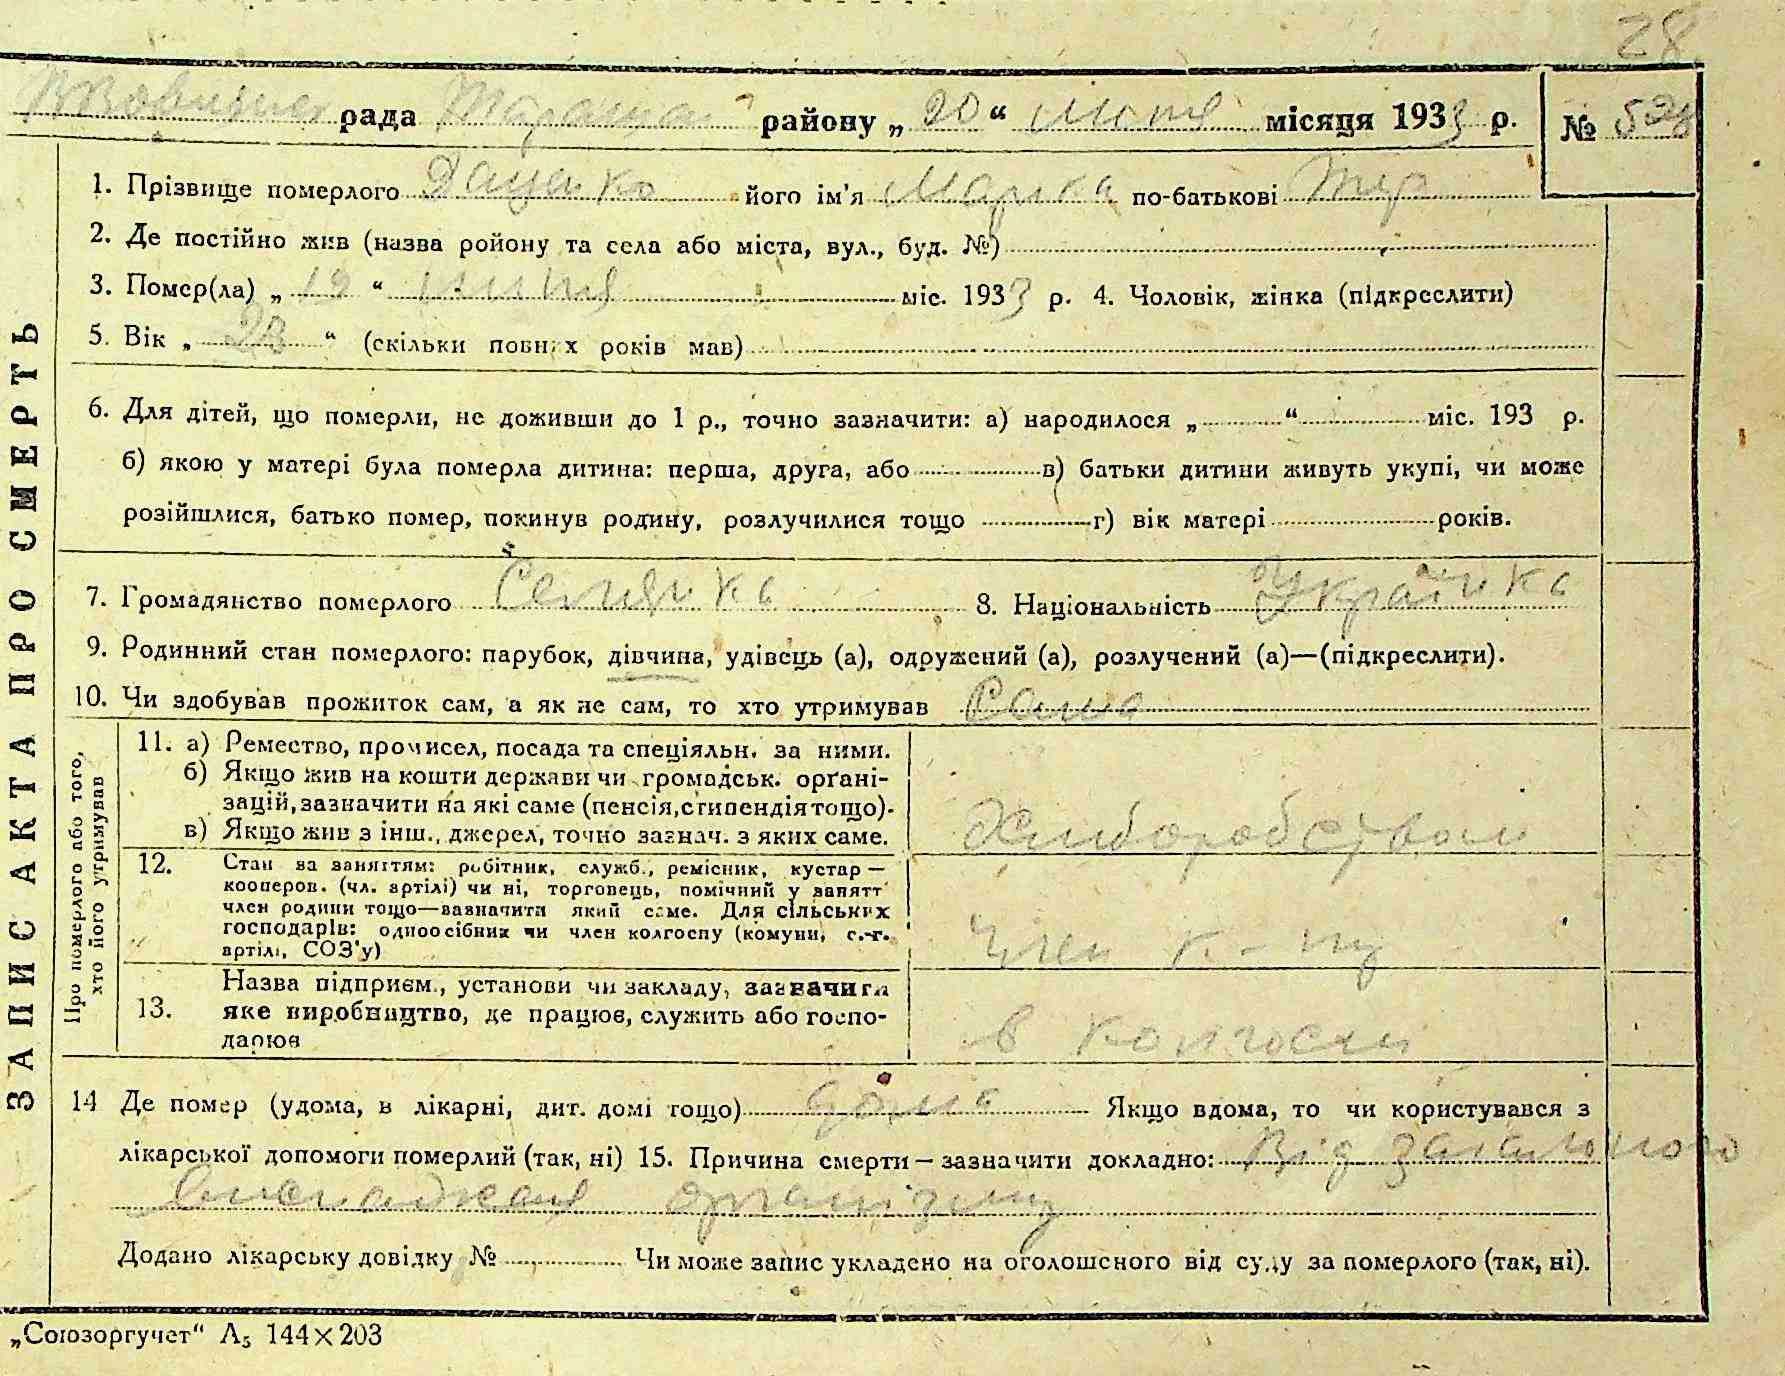 28
рада район у „ 20 “ місяця 1933 р. №
1. Прізвище померлого Даценко його ім'я по-батькові
2. Де постійно жив (назва ройону та села або міста, вул., буд. №)
3. Помер(ла) „ 19 “ липня міс. 1933 р. 4. Чоловік, жінка (підкреслити)
5. Вік „ “ (скільки повних років мав)
6. Для дітей, що померли, не доживши до 1 р., точно зазначити: а) народилося „ “ міс. 193 р.
б) якою у матері була померла дитина: перша, друга, або в) батьки дитини живуть укупі, чи може
розійшлися, батько помер, покинув родину, розлучилися тощо г) вік матері років.
7. Громадянство померлого Селянка 8. Національність Українка
9. Родинний стан померлого: парубок, дівчина, удівець (а), одружений (а), розлучений (а)—(підкреслити).
10. Чи здобував прожиток сам, а як не сам, то хто утримував Сама
ЗАПИС АКТА ПРО СМЕРТЬ
Про померлого або того,
хто його утримував
11. а) Ремество, промисел, посада та спеціяльн. за ними.
б) Якщо жив на кошти держави чи громадськ. орґані-
зацій, зазначити на які саме (пенсія, стипендія тощо).
в) Якщо жив з інш., джерел, точно зазнач. з яких саме.
Хліборобством
12. Стан за заняттям: робітник, служб., ремісник, кустар —
кооперов. (чл. артілі) чи ні, торговець, помічний у занятт
член родини тощо—зазначити який саме. Для сільських
господарів: одноосібник чи член колгоспу (комуни, с.-г.
артілі, СОЗ'у)
Член к-пу
13. Назва підприєм., установи чи закладу, зазначити
яке виробництво, де працює, служить або госпо-
дарює
в колгоспі
14 Де помер (удома, в лікарні, дит. домі тощо) дома Якщо вдома, то чи користувався з
лікарської допомоги померлий (так, ні) 15. Причина смерти — зазначити докладно: Від загального
организму
Додано лікарську довідку № Чи може запис укладено на оголошеного від суду за померлого (так, ні).
„Союзоргучет“ А₅ 144×203